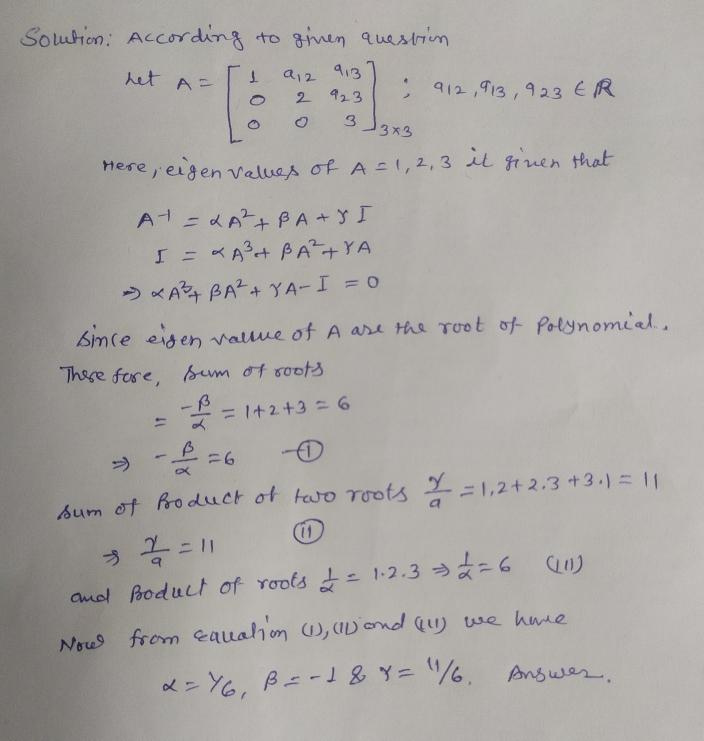 Solution: According to given question
Let A = [ 1 a12 a13
0 2 a23
0 0 3 ]3×3 ; a12, a13, a23 ∈ R
Here, eigen values of A = 1, 2, 3 it given that
A⁻¹ = αA² + βA + γI
I = αA³ + βA² + γA
⇒ αA³ + βA² + γA - I = 0
Since eigen vallue of A are the root of Polynomial.
There fore, sum of roots
= -β/α = 1+2+3 = 6
⇒ -β/α = 6 —(I)
Sum of Product of two roots γ/a = 1.2+2.3+3.1 = 11
⇒ γ/a = 11 (II)
and Product of roots 1/α = 1.2.3 ⇒ 1/α = 6 (III)
Now from equation (I), (II) and (III) we have
α = 1/6, β = -1 & γ = 11/6. Answer.